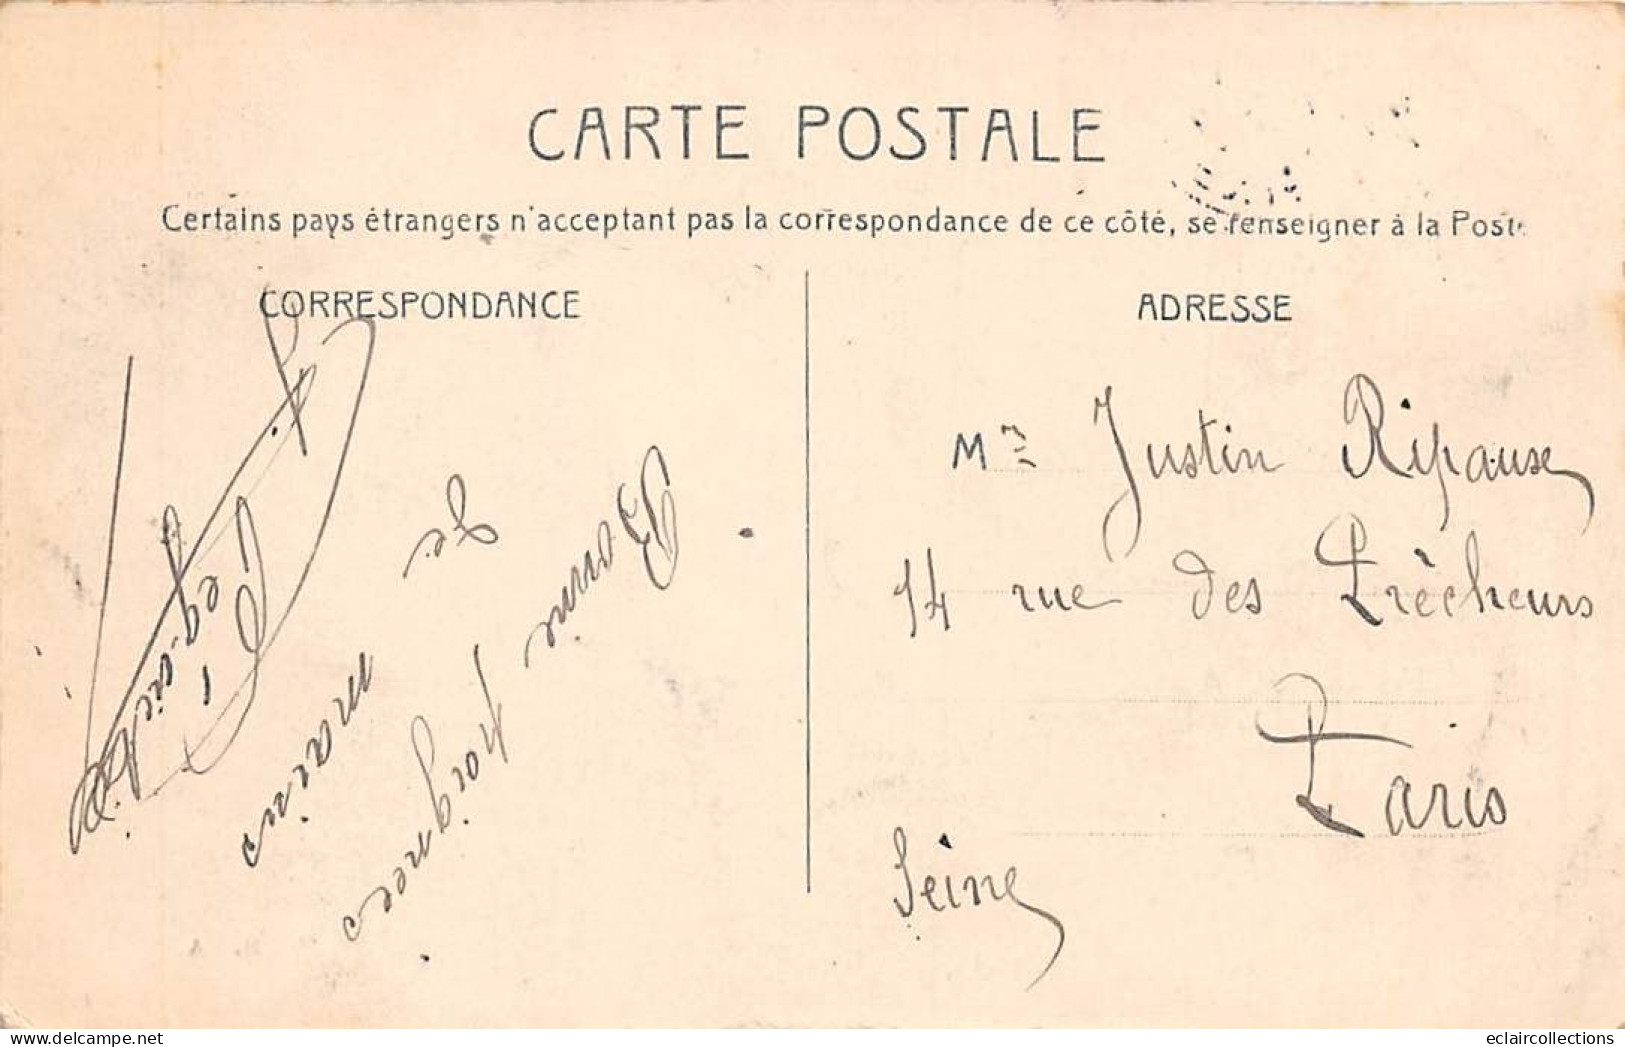 CARTE POSTALE
Certains pays étrangers n'acceptant pas la correspondance de ce côté, se renseigner à la Poste
CORRESPONDANCE
ADRESSE
Bonne poignées
de mains
Mr Justin Ripause
14 rue des Prêcheurs
Paris
Seine
eclaircollections